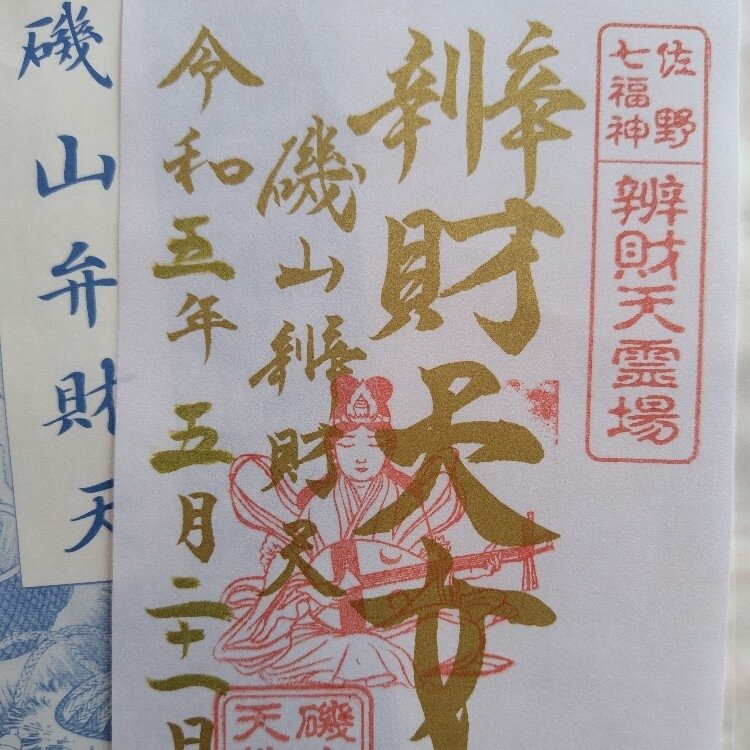 佐野
七福神
辨財天霊場
辨財天女
磯山辨財天
令和五年 五月二十一日
磯
天
磯山弁財天